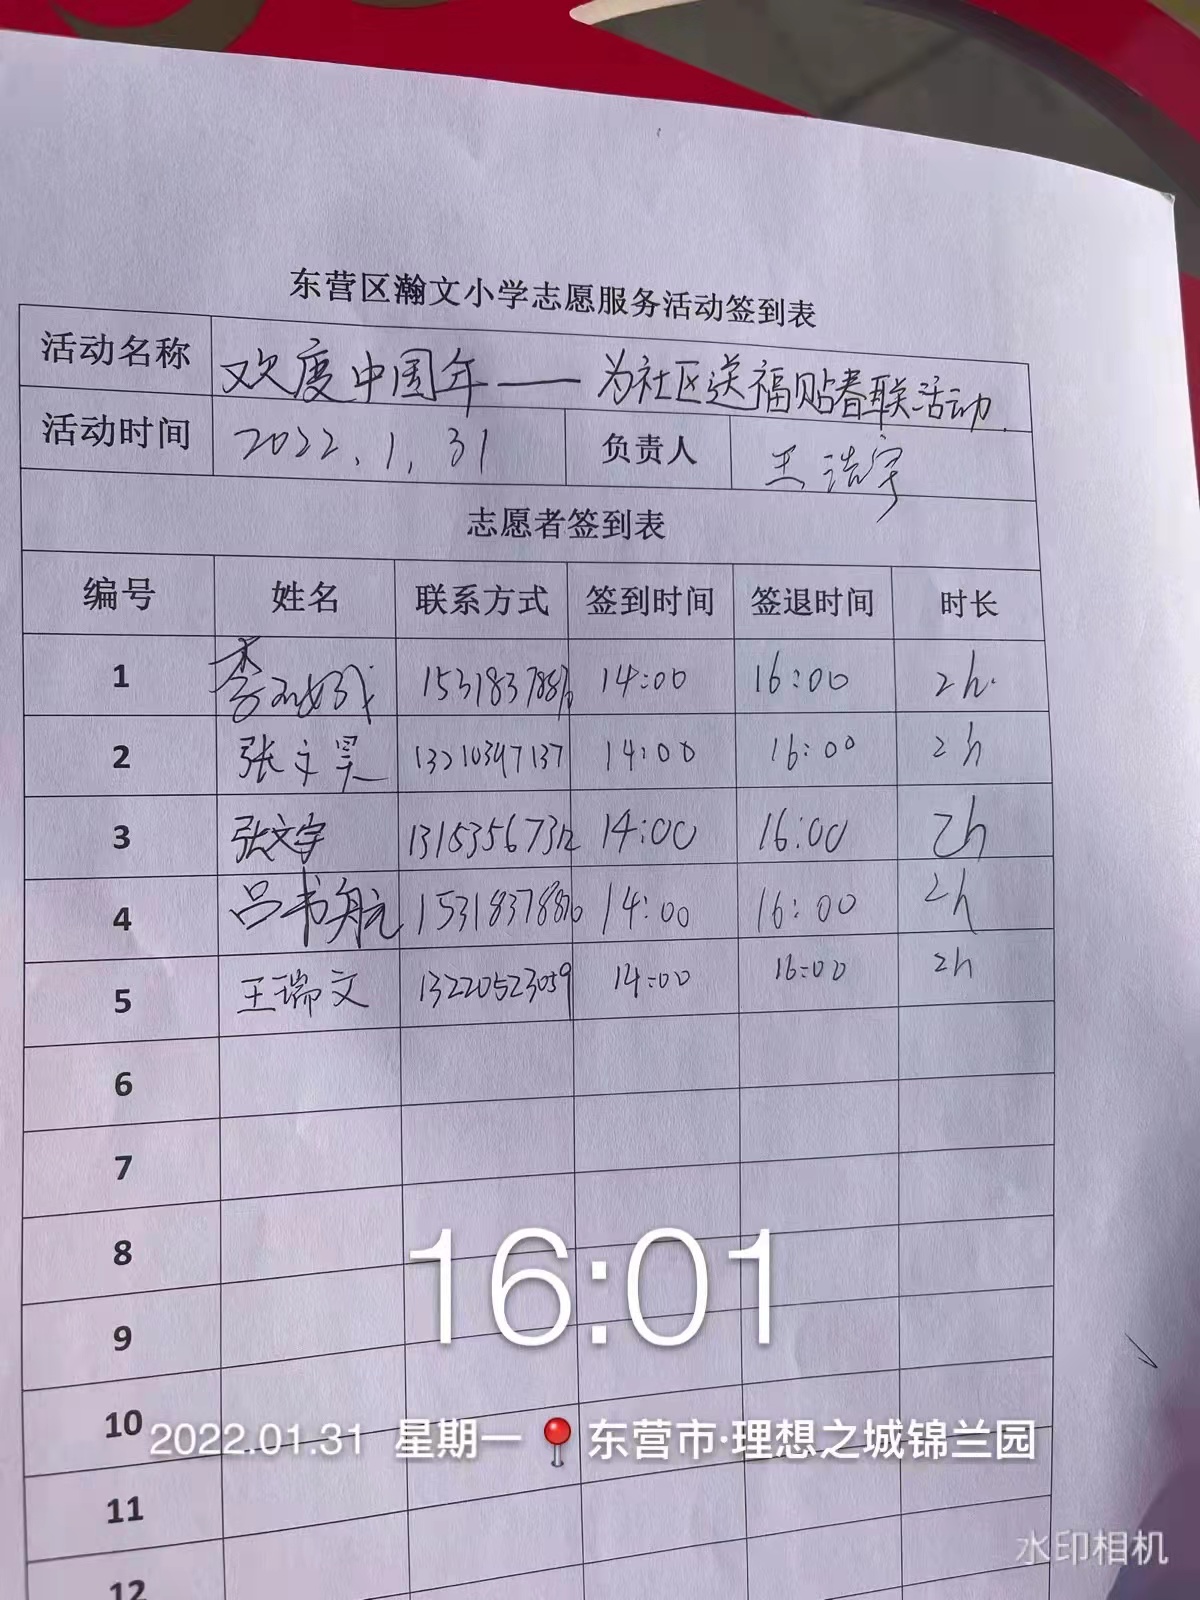 东营区瀚文小学志愿服务活动签到表
活动名称 欢度中国年——为社区送福贴春联活动.
活动时间 2022.1.31 负责人 王浩宇
志愿者签到表
编号 姓名 联系方式 签到时间 签退时间 时长
1 李 14:00 16:00 2h.
2 张文昊 13210347137 14:00 16:00 2h
3 张文宇 14:00 16:00 2h
4 吕书航 14:00 16:00 2h
5 王瑞文 13220523059 14:00 16:00 2h
6
7
8
16:01
9
10
2022.01.31 星期一 东营市·理想之城锦兰园
11
水印相机
12